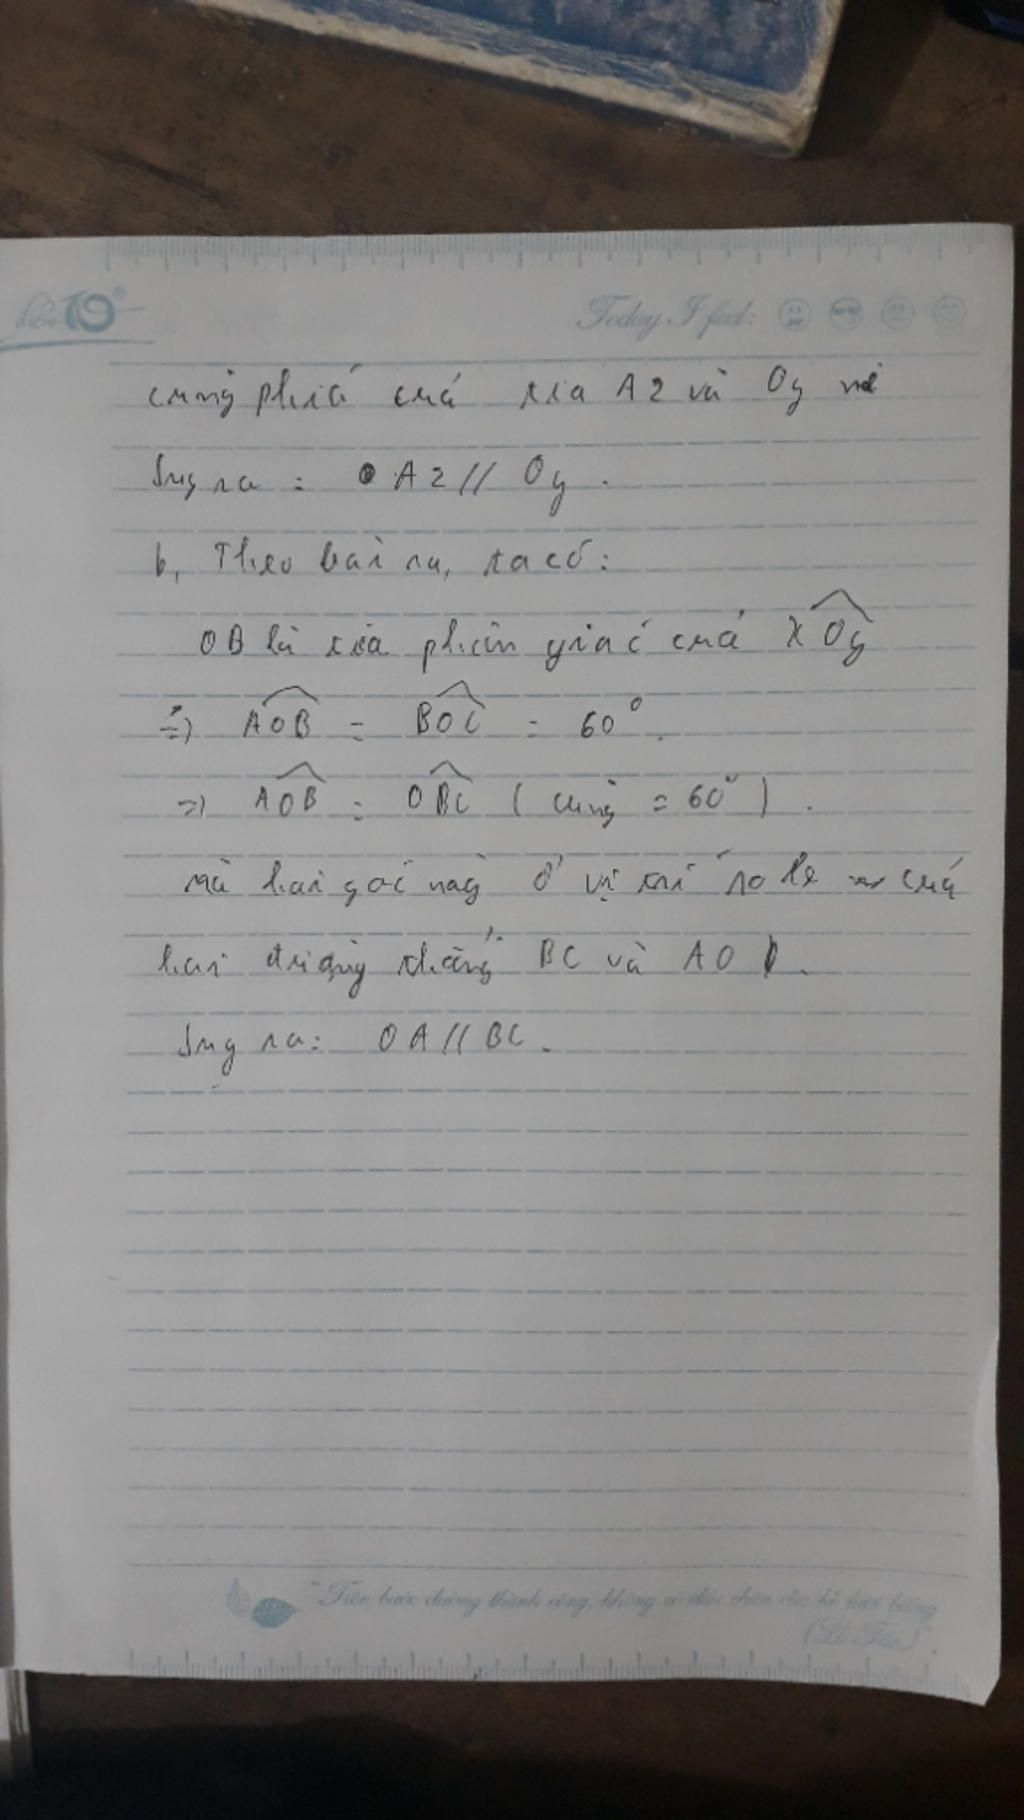 điểm 10
Today I feel:
cùng phía của tia Az và Oy
Suy ra : Az // Oy .
b, Theo bài ra, ta có :
OB là tia phân giác của xOy
=> AOB = BOC = 60° .
=> AOB = OBC ( cùng = 60° ) .
mà hai góc này ở vị trí so le của
hai đường thẳng BC và AO .
Suy ra : OA // BC .
"Trên bước đường thành công, không có dấu chân của kẻ lười biếng
(Lỗ Tấn)"